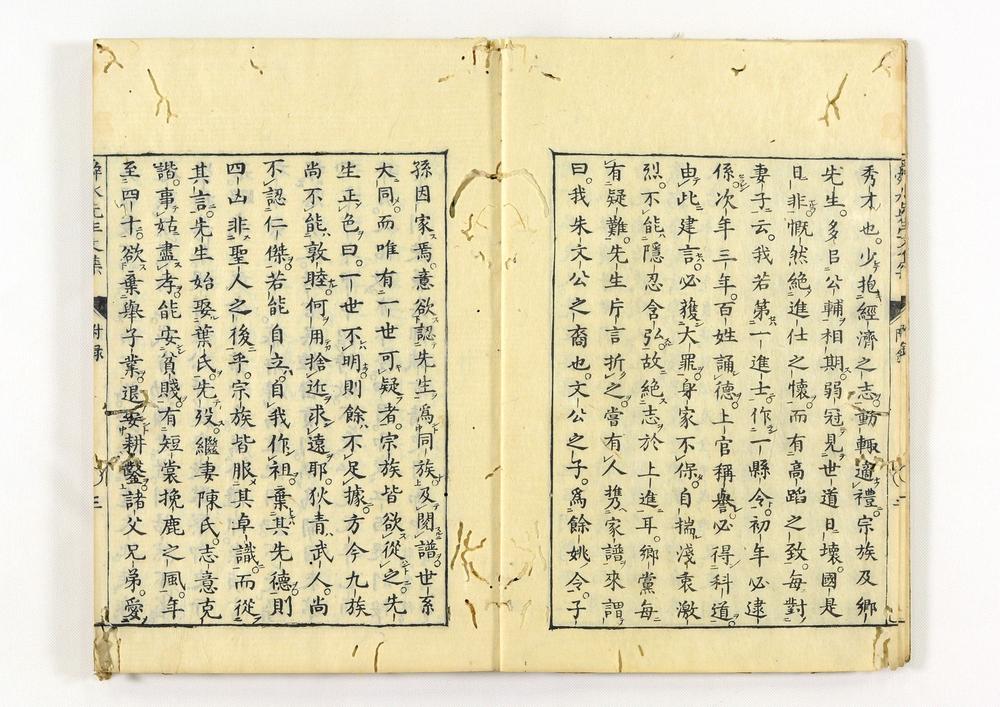 秀才也。少抱經濟之志。動輒適禮。宗族及鄉
先生。多以公輔相期。弱冠見世道日壞。國是
日非。慨然絕進仕之懷。而有高蹈之致。每對
妻子云。我若第一進士。作一縣令。初年必逮
係。次年三年。百姓誦德。上官稱譽。必得科道。
由此建言。必獲大罪。身家不保。自揣淺衷激
烈。不能隱忍含弘。故絕志於上進耳。鄉黨每
有疑難。先生片言折之。嘗有人攜家譜來謂
曰。我朱文公之裔也。文公之子。為餘姚令。子
孫因家焉。意欲認先生為同族。及閱譜。世系
大同。而唯有一世可疑者。宗族皆欲從之。先
生正色曰。一世不明。則餘不足據。方今九族
尚不能敦睦。何用捨近求遠耶。狄青武人。尚
不認仁傑。若能自立。自我作祖。棄其先德。則
四凶非聖人之後乎。宗族皆服其卓識。而從
其言。先生始娶葉氏。先歿。繼妻陳氏。志意克
諧。事姑盡孝。能安貧賤。有短裳挽鹿之風。年
至四十。欲棄舉子業。退安耕鑿。諸父兄弟。愛
舜水先生文集
附錄
三